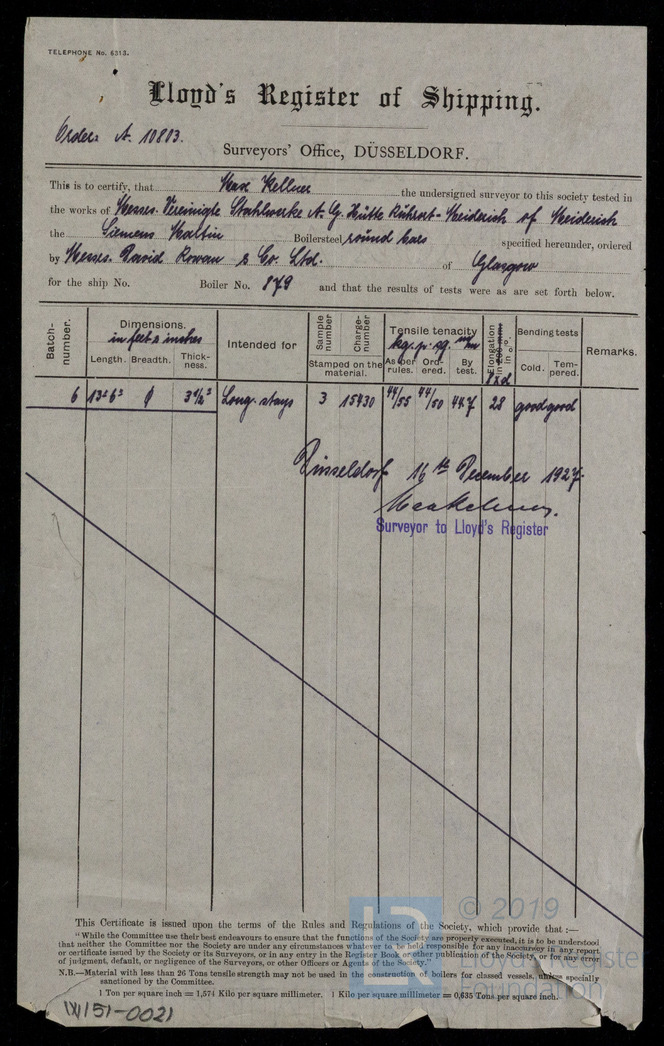 TELEPHONE No. 6313.
Lloyd's Register of Shipping.
Order: A. 10803.
Surveyors' Office, DÜSSELDORF.
This is to certify, that Max Kellner the undersigned surveyor to this society tested in
the works of Messrs. Vereinigte Stahlwerke A. G. Hütte Ruhrort-Meiderich of Meiderich
the Siemens Martin Boilersteel round bars specified hereunder, ordered
by Messrs. David Rowan & Co. Ltd. of Glasgow
for the ship No. Boiler No. 879 and that the results of tests were as are set forth below.
Batch-number. Dimensions. in feet & inches Length. Breadth. Thick-ness. Intended for Sample number Charge-number Stamped on the material. Tensile tenacity kg. p. sq. mm As per rules. Ord-ered. By test. Elongation in 200 mm in % 8xd Bending tests Cold. Tem-pered. Remarks.
6 13' 6" ϕ 3 1/2" Long. stays 3 15430 44/55 44/50 44.7 28 good good
Düsseldorf 16th December 1927.
Surveyor to Lloyd's Register
This Certificate is issued upon the terms of the Rules and Regulations of the Society, which provide that :—
"While the Committee use their best endeavours to ensure that the functions of the Society are properly executed, it is to be understood
that neither the Committee nor the Society are under any circumstances whatever to be held responsible for any inaccuracy in any report
or certificate issued by the Society or its Surveyors, or in any entry in the Register Book or other publication of the Society, or for any error
of judgment, default, or negligence of the Surveyors, or other Officers or Agents of the Society."
N.B.—Material with less than 26 Tons tensile strength may not be used in the construction of boilers for classed vessels, unless specially
sanctioned by the Committee.
1 Ton per square inch = 1,574 Kilo per square millimetre. 1 Kilo per square millimetre = 0,635 Tons per square inch.
© 2019
Lloyd's Register
Foundation
W151-0021